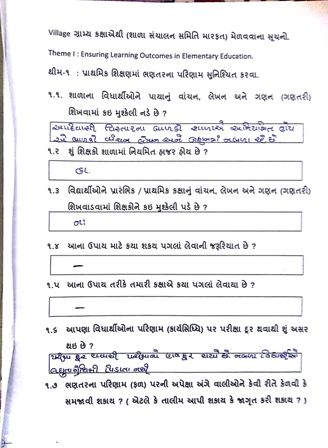 Village ગ્રામ્ય કક્ષાએથી (શાળા સંચાલન સમિતિ મારફત) મેળવવાના સૂચનો.
Theme I : Ensuring Learning Outcomes in Elementary Education.
થીમ-૧ : પ્રાથમિક શિક્ષણમાં ભણતરના પરિણામ સુનિશ્ચિત કરવા.
૧.૧. શાળાના વિધાર્થીઓને પાયાનું વાંચન, લેખન અને ગણન (ગણતરી)
શિખવામાં કઇ મુશ્કેલી નડે છે ?
આદિવાસી વિસ્તારના બાળકો શાળાએ અનિયમિત હોય
છે બાળકો વાંચન લેખન અને ગણનમાં નબળા રહે છે
૧.૨ શું શિક્ષકો શાળામાં નિયમિત હાજર હોય છે ?
હા.
૧.૩ વિદ્યાર્થીઓને પ્રારંભિક / પ્રાથમિક કક્ષાનું વાંચન, લેખન અને ગણન (ગણતરી)
શિખવાડવામાં શિક્ષકોને કઇ મુશ્કેલી પડે છે ?
ના:
૧.૪ આના ઉપાય માટે કયા શક્ય પગલાં લેવાની જરૂરિયાત છે ?
—
૧.૫ આના ઉપાય તરીકે તમારી કક્ષાએ કયા પગલાં લેવાયા છે ?
—
૧.૬ આપણા વિધાર્થીઓના પરિણામ (કાર્યસિધ્ધિ) પર પરીક્ષા દૂર થવાથી શું અસર
થઇ છે ?
પરીક્ષા દૂર થવાથી પરીક્ષાનો હાવ દૂર થયો છે. નબળા વિદ્યાર્થીઓ
લઘુતાગ્રંથિથી પિડાતા નથી
૧.૭ ભણતરના પરિણામ (ફળ) પરની અપેક્ષા અંગે વાલીઓને કેવી રીતે કેળવી કે
સમજાવી શકાય ? ( એટલે કે તાલીમ આપી શકાય કે જાગૃત કરી શકાય ? )